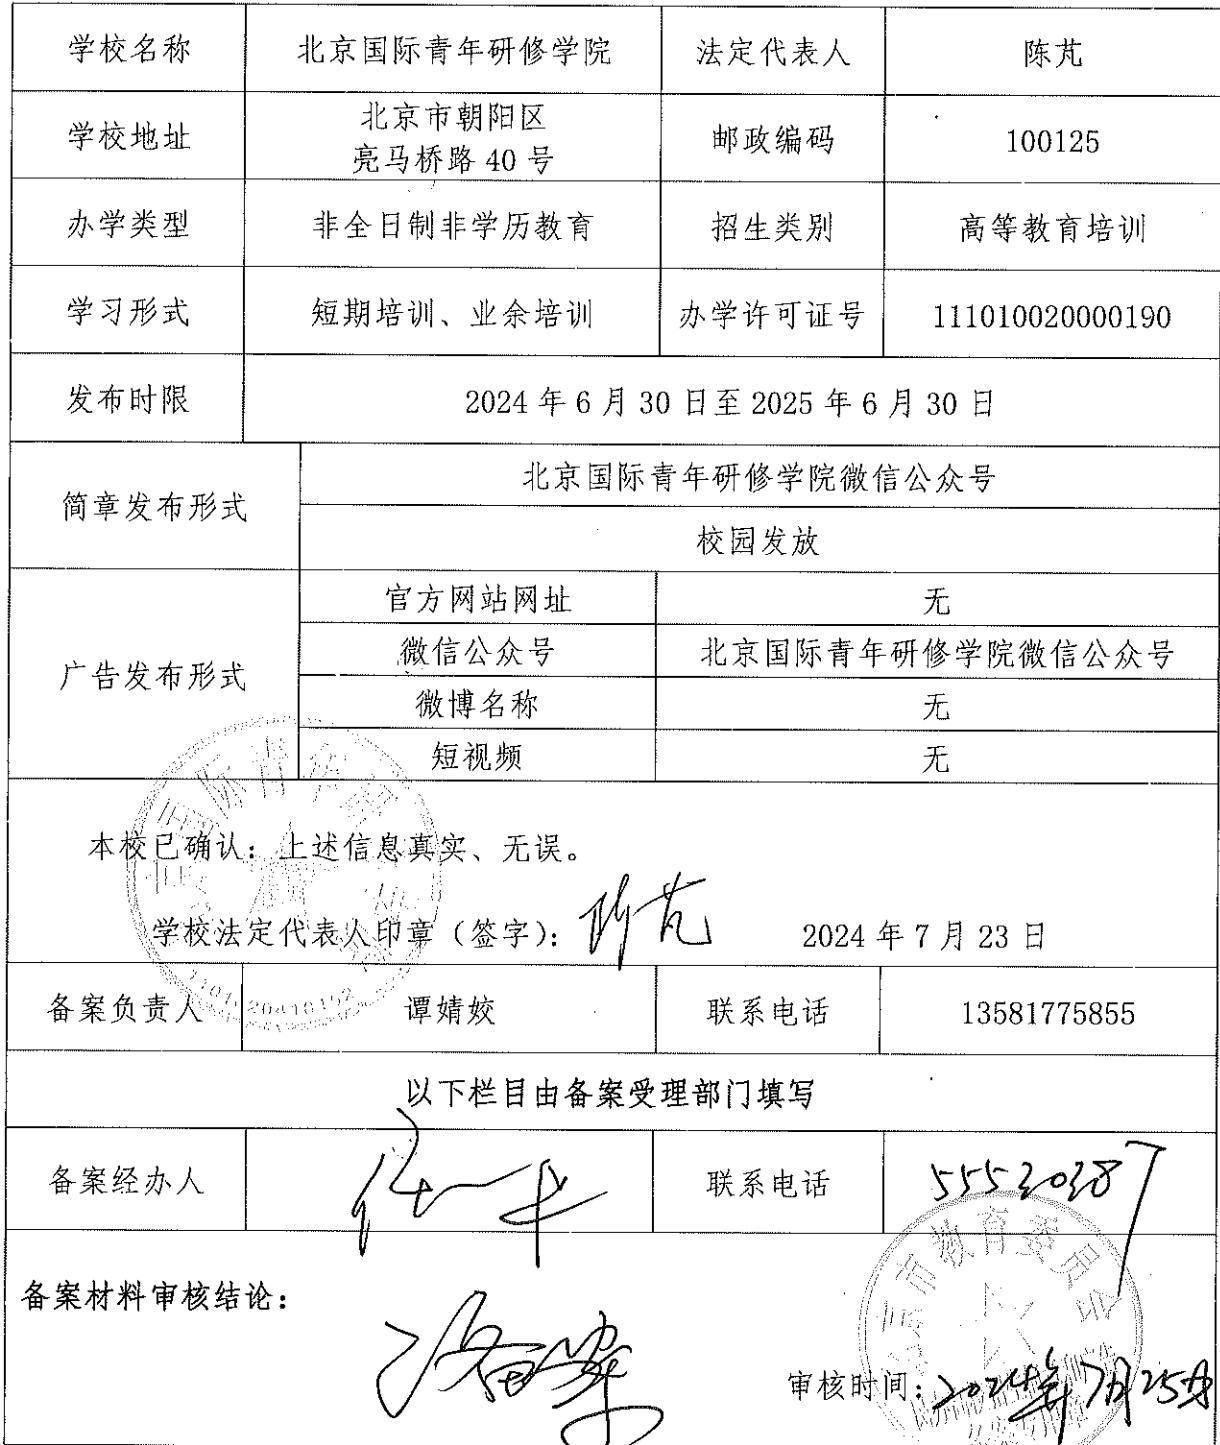 学校名称 北京国际青年研修学院 法定代表人 陈芃
学校地址 北京市朝阳区 邮政编码 100125
亮马桥路 40 号
办学类型 非全日制非学历教育 招生类别 高等教育培训
学习形式 短期培训、业余培训 办学许可证号 111010020000190
发布时限 2024 年 6 月 30 日至 2025 年 6 月 30 日
简章发布形式 北京国际青年研修学院微信公众号
校园发放
广告发布形式 官方网站网址 无
微信公众号 北京国际青年研修学院微信公众号
微博名称 无
短视频 无
本校已确认：上述信息真实、无误。
学校法定代表人印章（签字）：陈芃 2024 年 7 月 23 日
备案负责人 谭婧姣 联系电话 13581775855
以下栏目由备案受理部门填写
备案经办人 联系电话 55530387
备案材料审核结论：
已备案
审核时间：2024年7月25日
北京市教育委员会